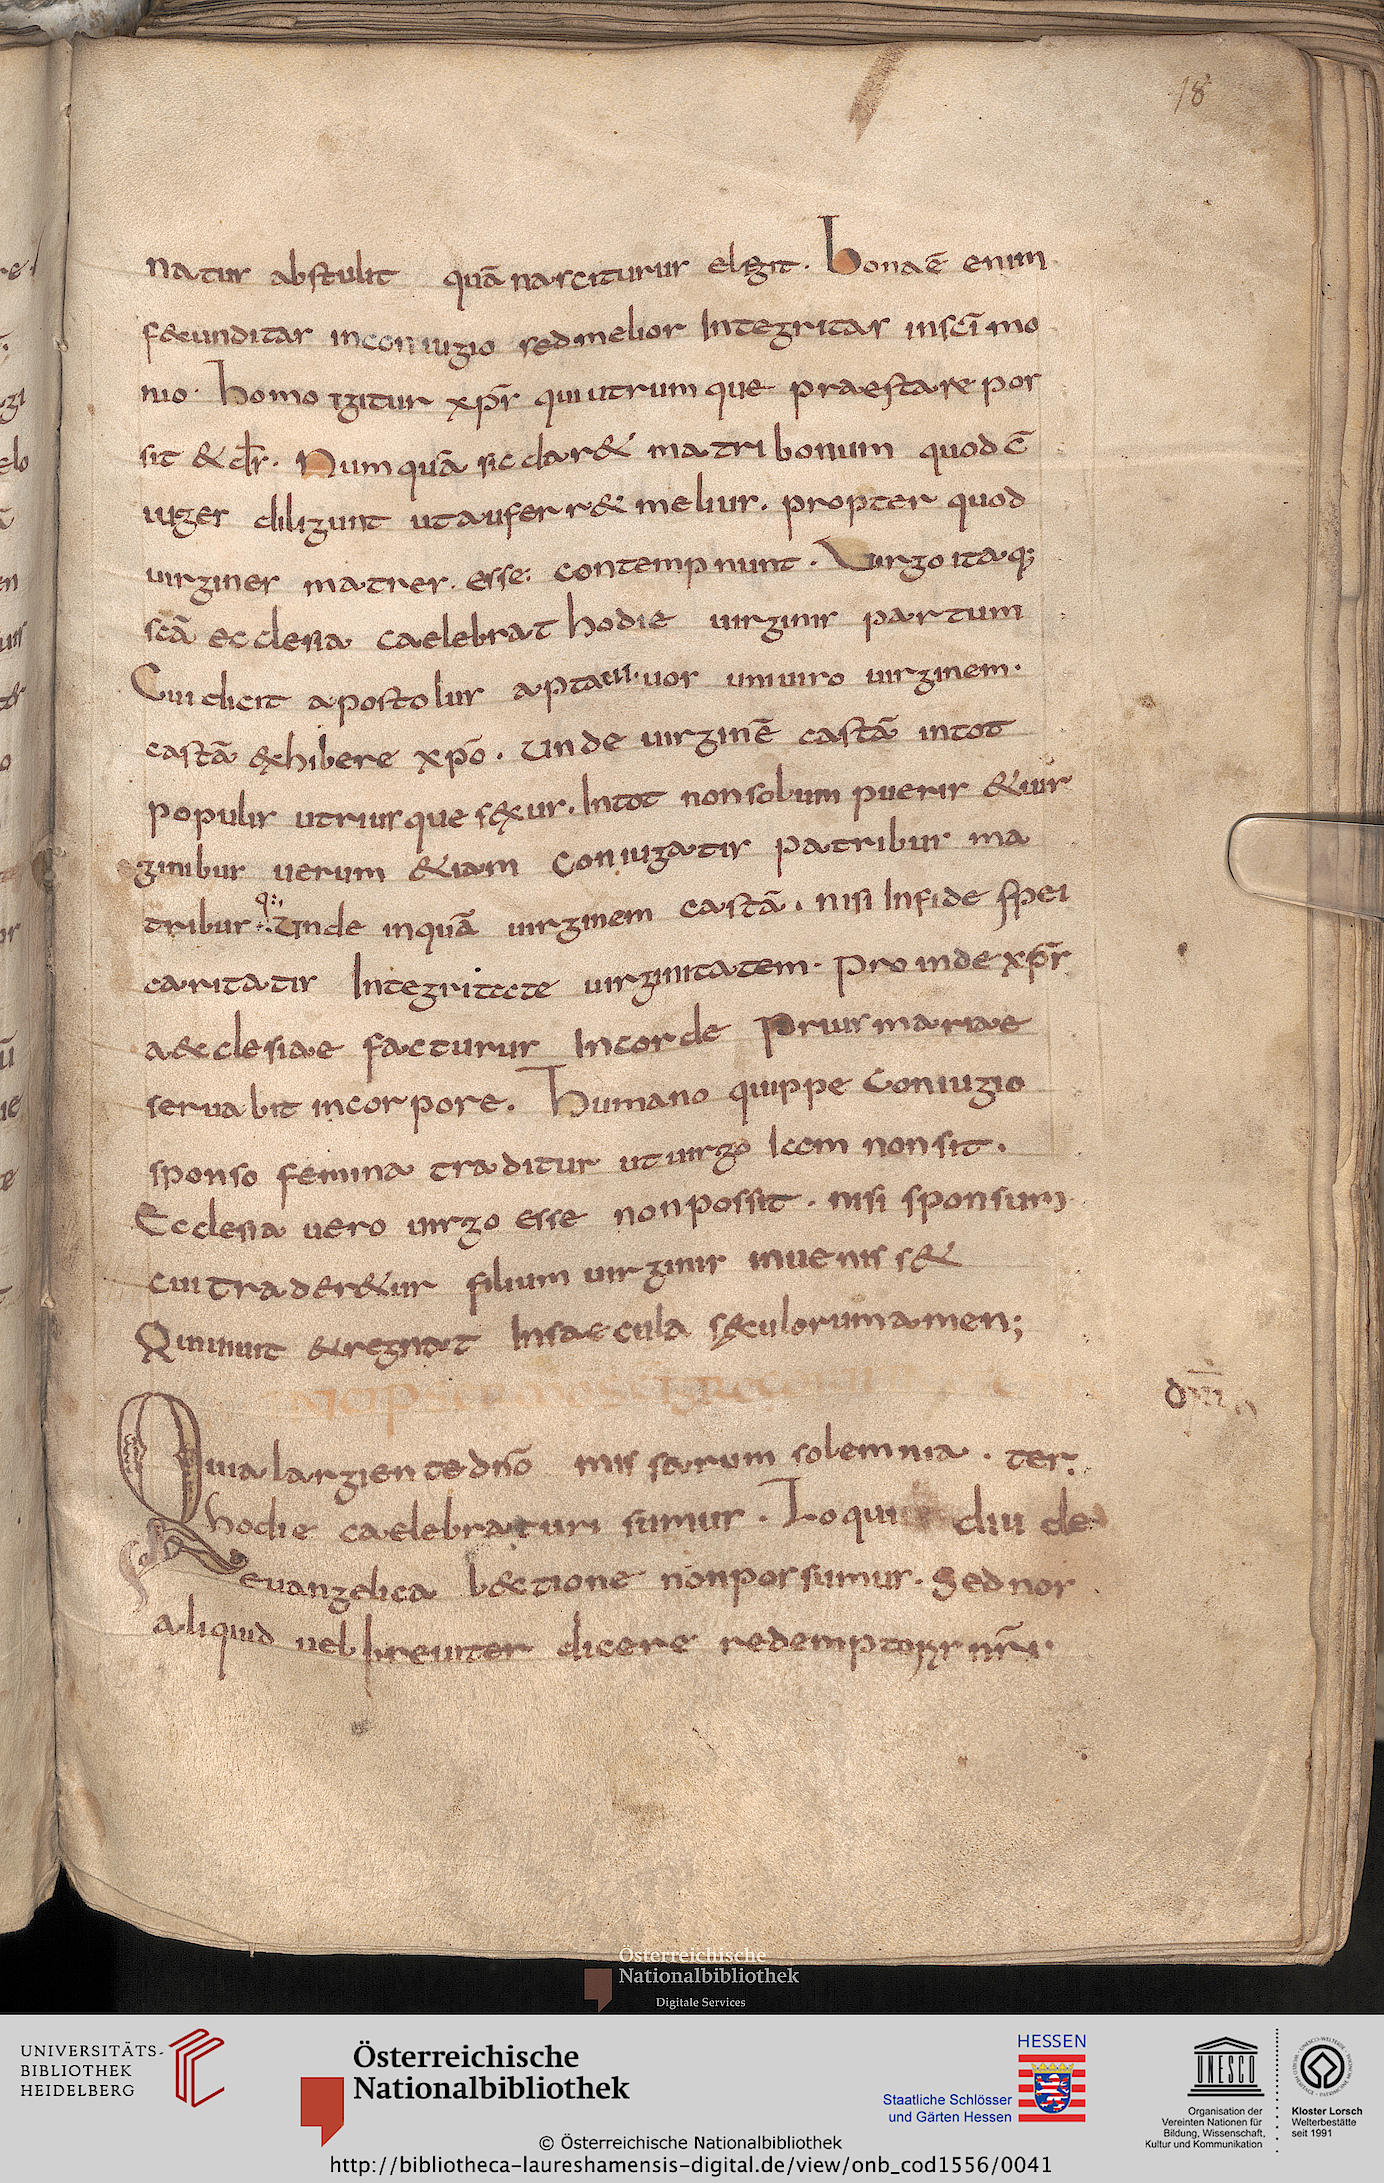 18
natus abstulit quā nasciturus elegit. Bona ē enim
fecunditas in coniugio sed melior integritas in scīmo
nio. homo igitur xp̄s qui utrumque praestare pos
sit & dr̄. Numquā sic dar& matri bonum quod c̄
iuges diligunt ut auferr& melius. propter quod
uirgines matres. esse. contempnunt. Virgo itaq;
scā ecclesia caelebrat hodie uirginis partum
Cui dicit apostolus aptaui uos uni uiro uirginem.
castā exhibere xp̄o. Unde uirginē castā in tot
populis utriusque sexus. In tot non solum pueris & uir
ginibus uerum &iam coniugatis patribus ma
tribus q: Unde inquā uirginem castā. nisi in fide spei
caritatis integritate uirginitatem. Proinde xp̄s
aecclesiae facturus in corde prius mariae
seruabit in corpore. Humano quippe coniugio
sponso femina traditur ut uirgo iam non sit.
Ecclesia uero uirgo esse non possit. nisi sponsum
cui trader&ur filium uirginis inuenis s&
Qui uiuit & regnat in saecula seculorum amen;
Quia largiente dn̄o missarum solemnia. ter.
hodie caelebraturi sumus. Loqui diu de
euangelica lectione non possumus. Sed nos
aliquid uel breuiter dicere redemptoris nr̄i.
Österreichische
Nationalbibliothek
Digitale Services
UNIVERSITÄTS-
BIBLIOTHEK
HEIDELBERG
Österreichische
Nationalbibliothek
HESSEN
Staatliche Schlösser
und Gärten Hessen
UNESCO
Organisation der
Vereinten Nationen für
Bildung, Wissenschaft,
Kultur und Kommunikation
Kloster Lorsch
Welterbestätte
seit 1991
© Österreichische Nationalbibliothek
http://bibliotheca-laureshamensis-digital.de/view/onb_cod1556/0041